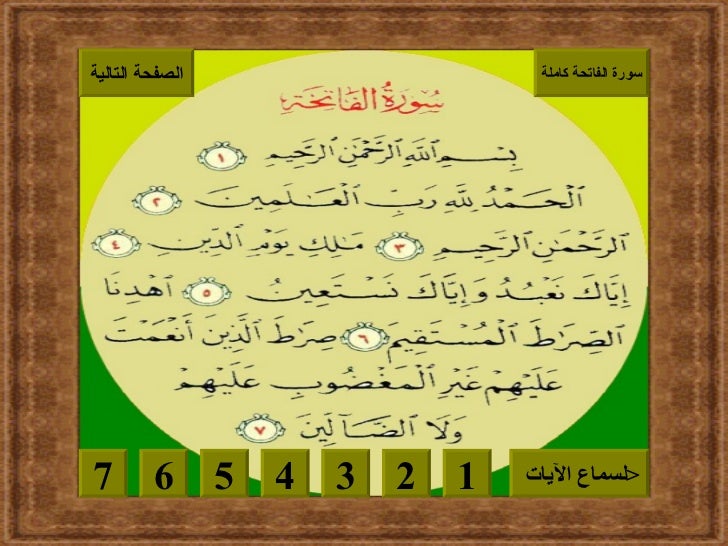 سورة الفاتحة كاملة
الصفحة التالية
سُورَةُ الفَاتِحَةِ
بِسْمِ ٱللَّهِ ٱلرَّحْمَٰنِ ٱلرَّحِيمِ ١
ٱلْحَمْدُ لِلَّهِ رَبِّ ٱلْعَٰلَمِينَ ٢
ٱلرَّحْمَٰنِ ٱلرَّحِيمِ ٣ مَٰلِكِ يَوْمِ ٱلدِّينِ ٤
إِيَّاكَ نَعْبُدُ وَإِيَّاكَ نَسْتَعِينُ ٥ ٱهْدِنَا
ٱلصِّرَٰطَ ٱلْمُسْتَقِيمَ ٦ صِرَٰطَ ٱلَّذِينَ أَنْعَمْتَ
عَلَيْهِمْ غَيْرِ ٱلْمَغْضُوبِ عَلَيْهِمْ
وَلَا ٱلضَّآلِّينَ ٧
>لسماع الآيات 1 2 3 4 5 6 7